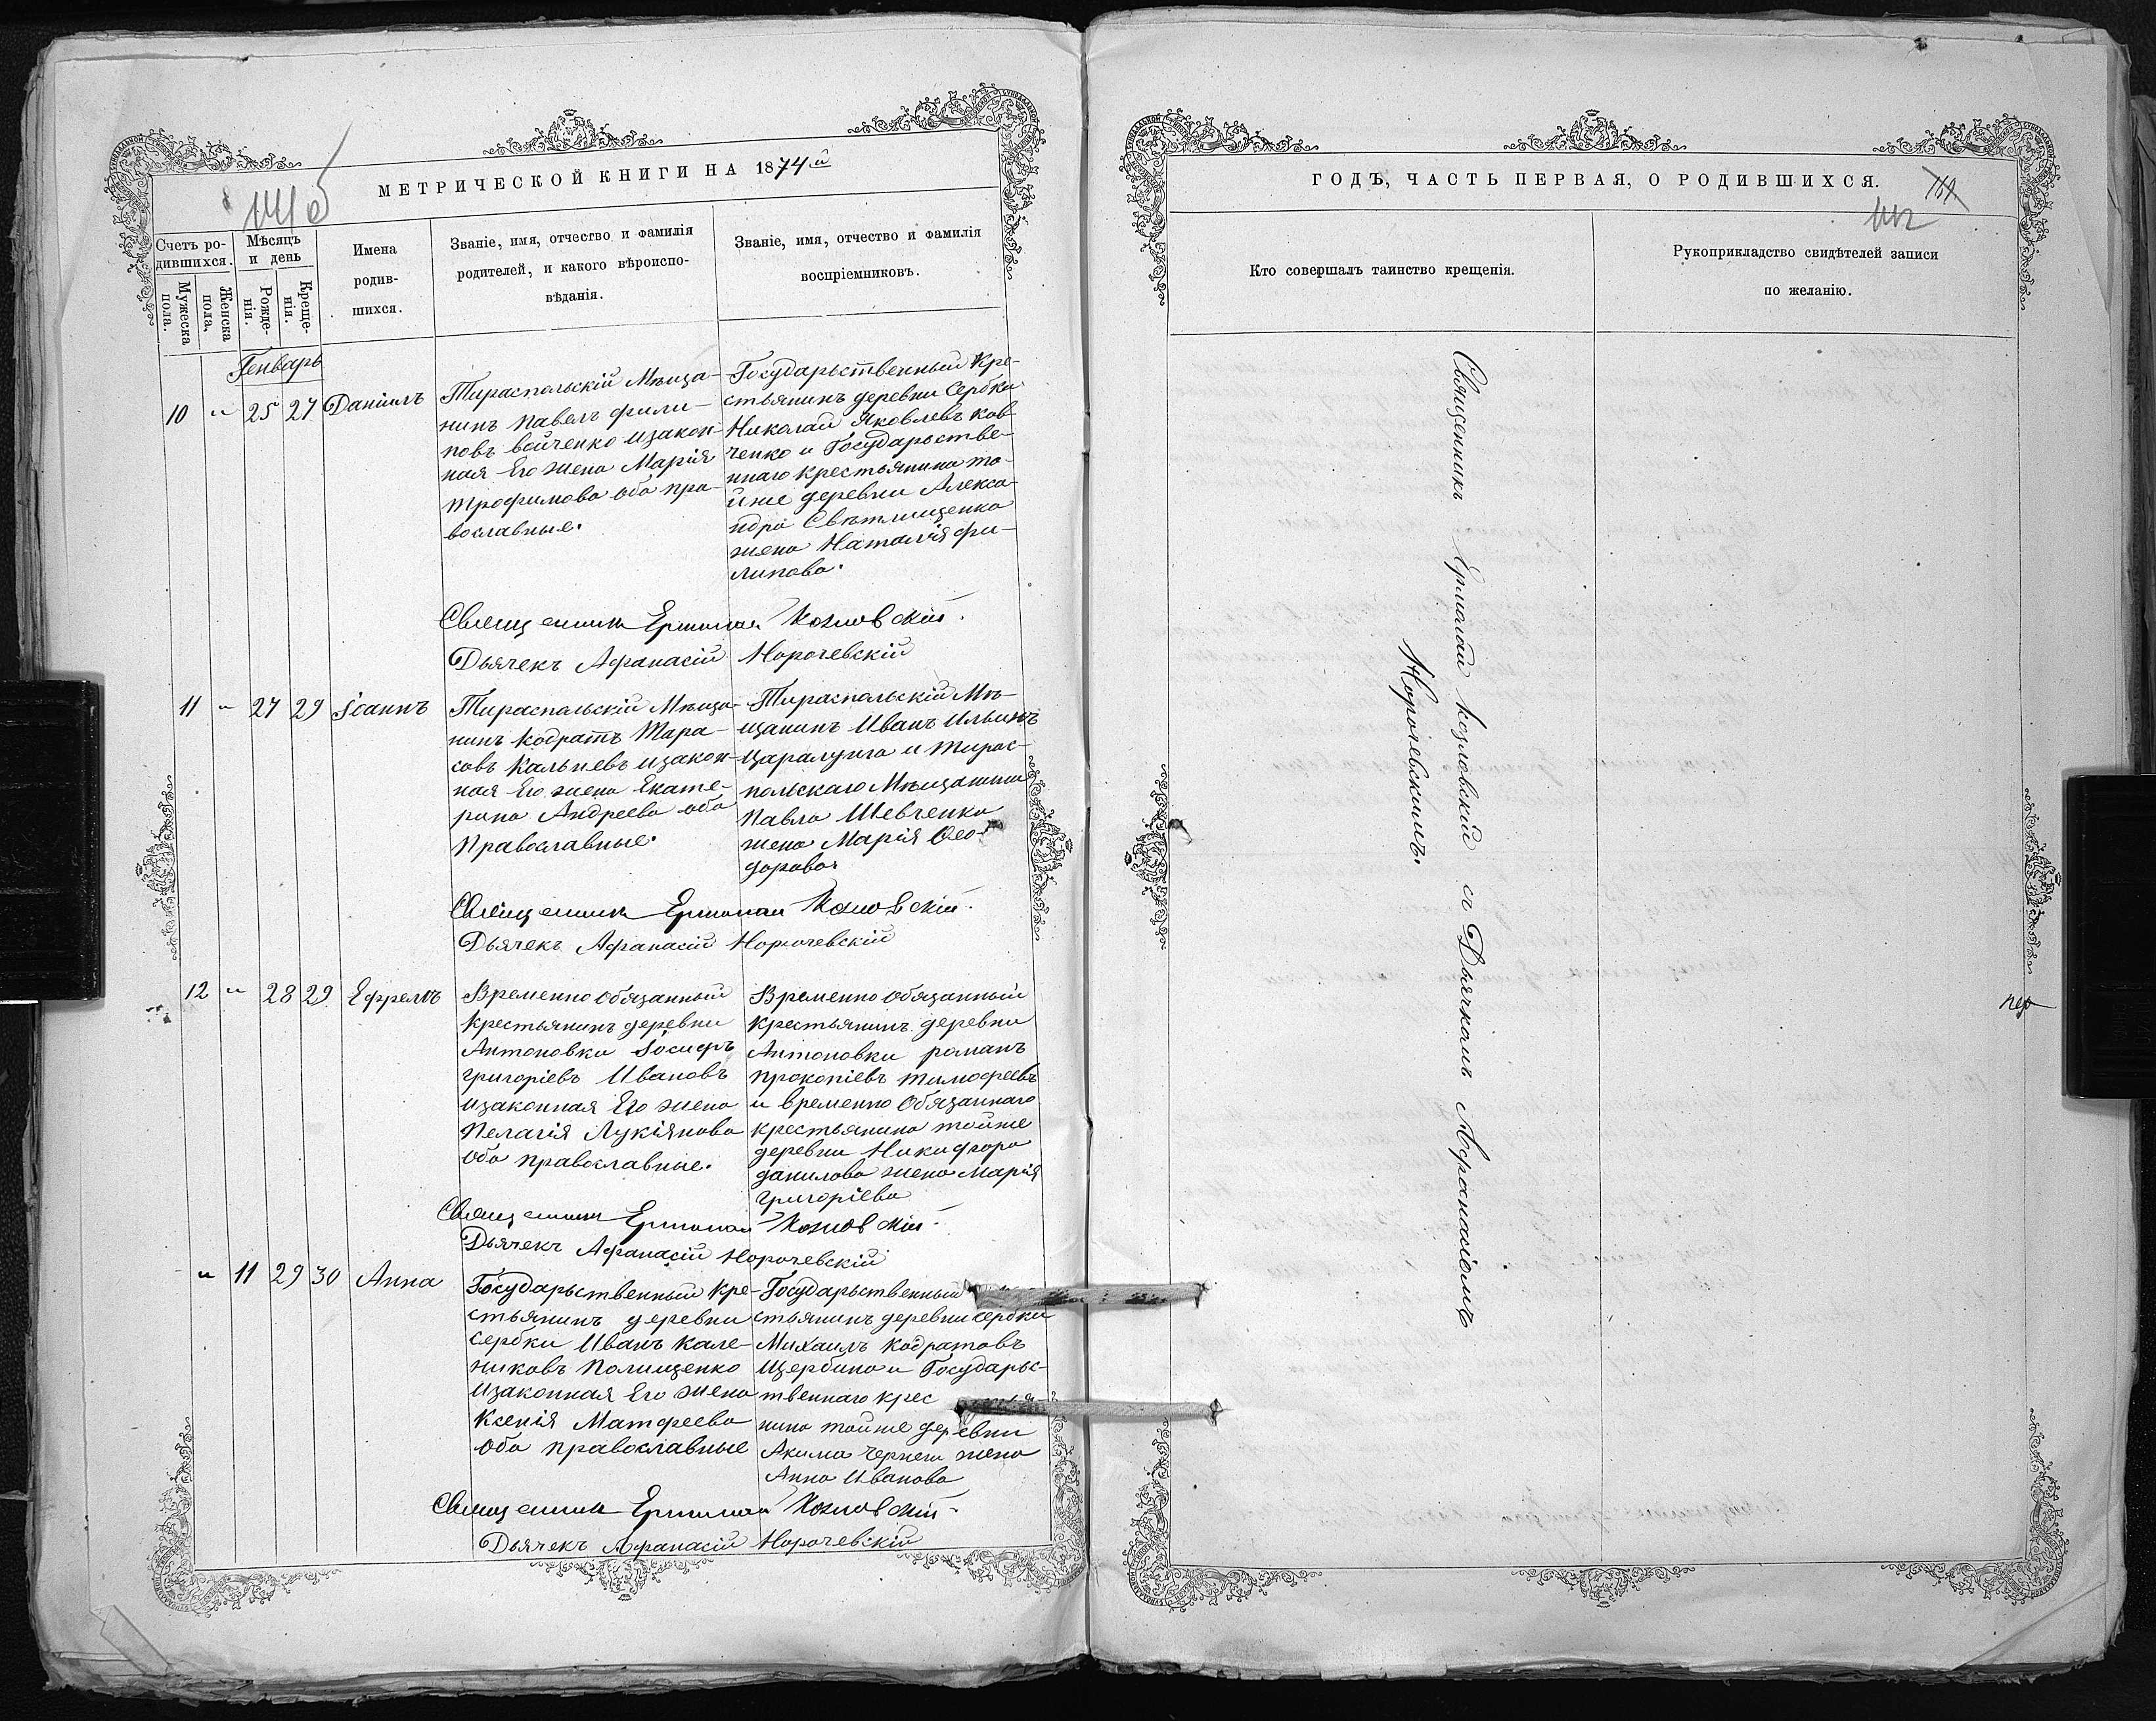 МЕТРИЧЕСКОЙ КНИГИ НА 1874й
Счетъ ро-
дившихся.
Мужеска
пола.
Женска
пола.
Мѣсяцъ
и день
Рожде-
нія.
Креще-
нія.
Имена
родив-
шихся.
Званіе, имя, отчество и фамилія
родителей, и какого вѣроиспо-
вѣданія.
Званіе, имя, отчество и фамилія
воспріемниковъ.
Генварь
10 " 25 27 Даніилъ
Тираспольскій Мѣща-
нинъ Павелъ фили-
повъ Войченко изакон-
ная Его жена Марія
Трофимова оба пра-
вославные.
Государьственный Кре-
стьянинъ деревни Сербки
Николай Яковлевъ Ков-
ченко и Государьстве-
ннаго крестьянина то-
йже деревни Алекса-
ндра Свѣтлищенка
жена Наталія фи-
липова.
Священникъ Ермолай Козловскій.
Дьячекъ Афанасій Норочевскій
11 " 27 29 Іоаннъ
Тираспольскій Мѣща-
нинъ Кодратъ Тара-
совъ Кальневъ изакон-
ная Его жена Екате-
рина Андреева оба
Православные.
Тираспольскій Мѣ-
щанинъ Иванъ Ильинъ
Царалунга и Тирас-
польскаго Мѣщанина
Павла Шевченка
жена Марія Ѳео-
дорова
Священникъ Ермолай Козловскій.
Дьячекъ Афанасій Норочевскій
12 " 28 29 Ефремъ
Временно Обязанный
Крестьянинъ деревни
Антоновки Іосифъ
Григоріевъ Ивановъ
изаконная Его жена
Пелагія Лукіянова
Оба православные.
Временно Обязанный
Крестьянинъ деревни
Антоновки романъ
Прокопіевъ Тимофеевъ
и временно Обязаннаго
Крестьянина тойже
деревни Никифора
данилова жена Марія
Григоріева
Священникъ Ермолай Козловскій.
Дьячекъ Афанасій Норочевскій
" 11 29 30 Анна
Государьственный Кре-
стьянинъ деревни
Сербки Иванъ Кале-
никовъ Полищенко
Изаконная Его жена
Ксенія Матфеева
Оба православные
Государьственный
стьянинъ деревни Сербки
Михаилъ Кодратовъ
Щербина и Государьс-
твеннаго Крес
нина тойже деревни
Акима Чернеи жена
Анна Иванова
Священникъ Ермолай Козловскій.
Дьячекъ Афанасій Норочевскій
ГОДЪ, ЧАСТЬ ПЕРВАЯ, О РОДИВШИХСЯ.
Кто совершалъ таинство крещенія.
Рукоприкладство свидѣтелей записи
по желанію.
Священникъ Ермолай Козловскій съ Дьячкомъ Афанасіомъ
Норочевскимъ.